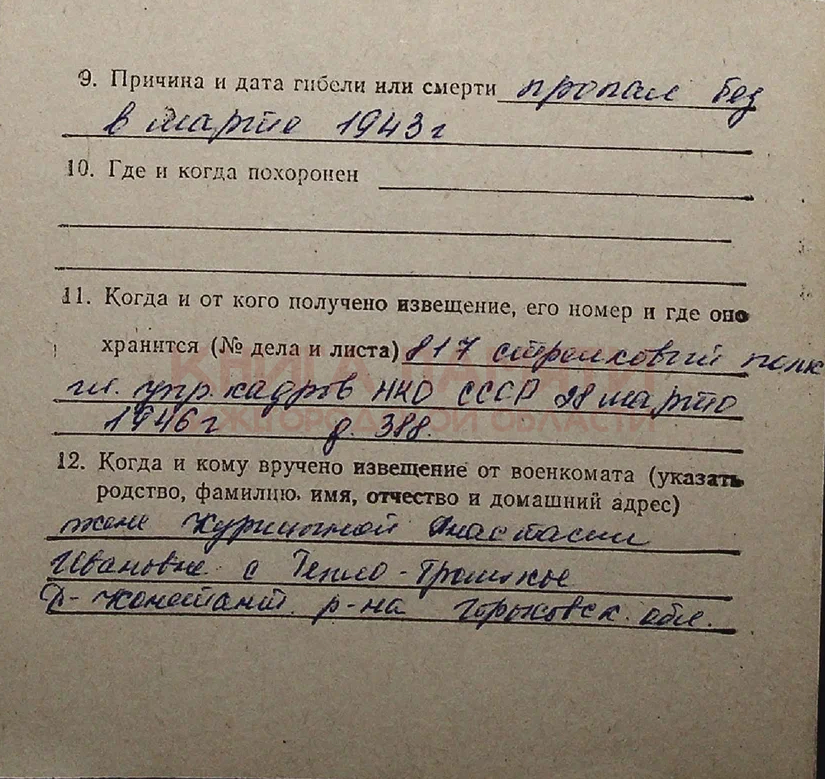 9. Причина и дата гибели или смерти пропал без
в марте 1943 г
10. Где и когда похоронен
11. Когда и от кого получено извещение, его номер и где оно
хранится (№ дела и листа) 817 стрелковый полк
гл. упр. кадров НКО СССР 28 марта
1946 г д. 388.
КНИГА ПАМЯТИ
НИЖЕГОРОДСКОЙ ОБЛАСТИ
12. Когда и кому вручено извещение от военкомата (указать
родство, фамилию, имя, отчество и домашний адрес)
жене Курицыной Анастасии
Ивановне с Тепло-Троицкое
Д-Констант. р-на Горьковск. обл.